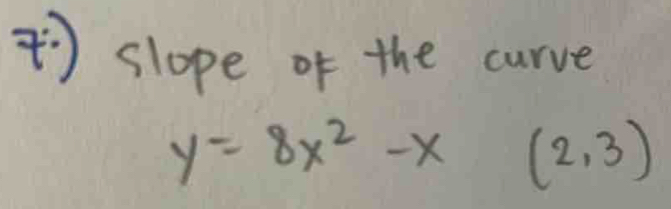 7:) slope of the curve
y = 8x² - x (2,3)